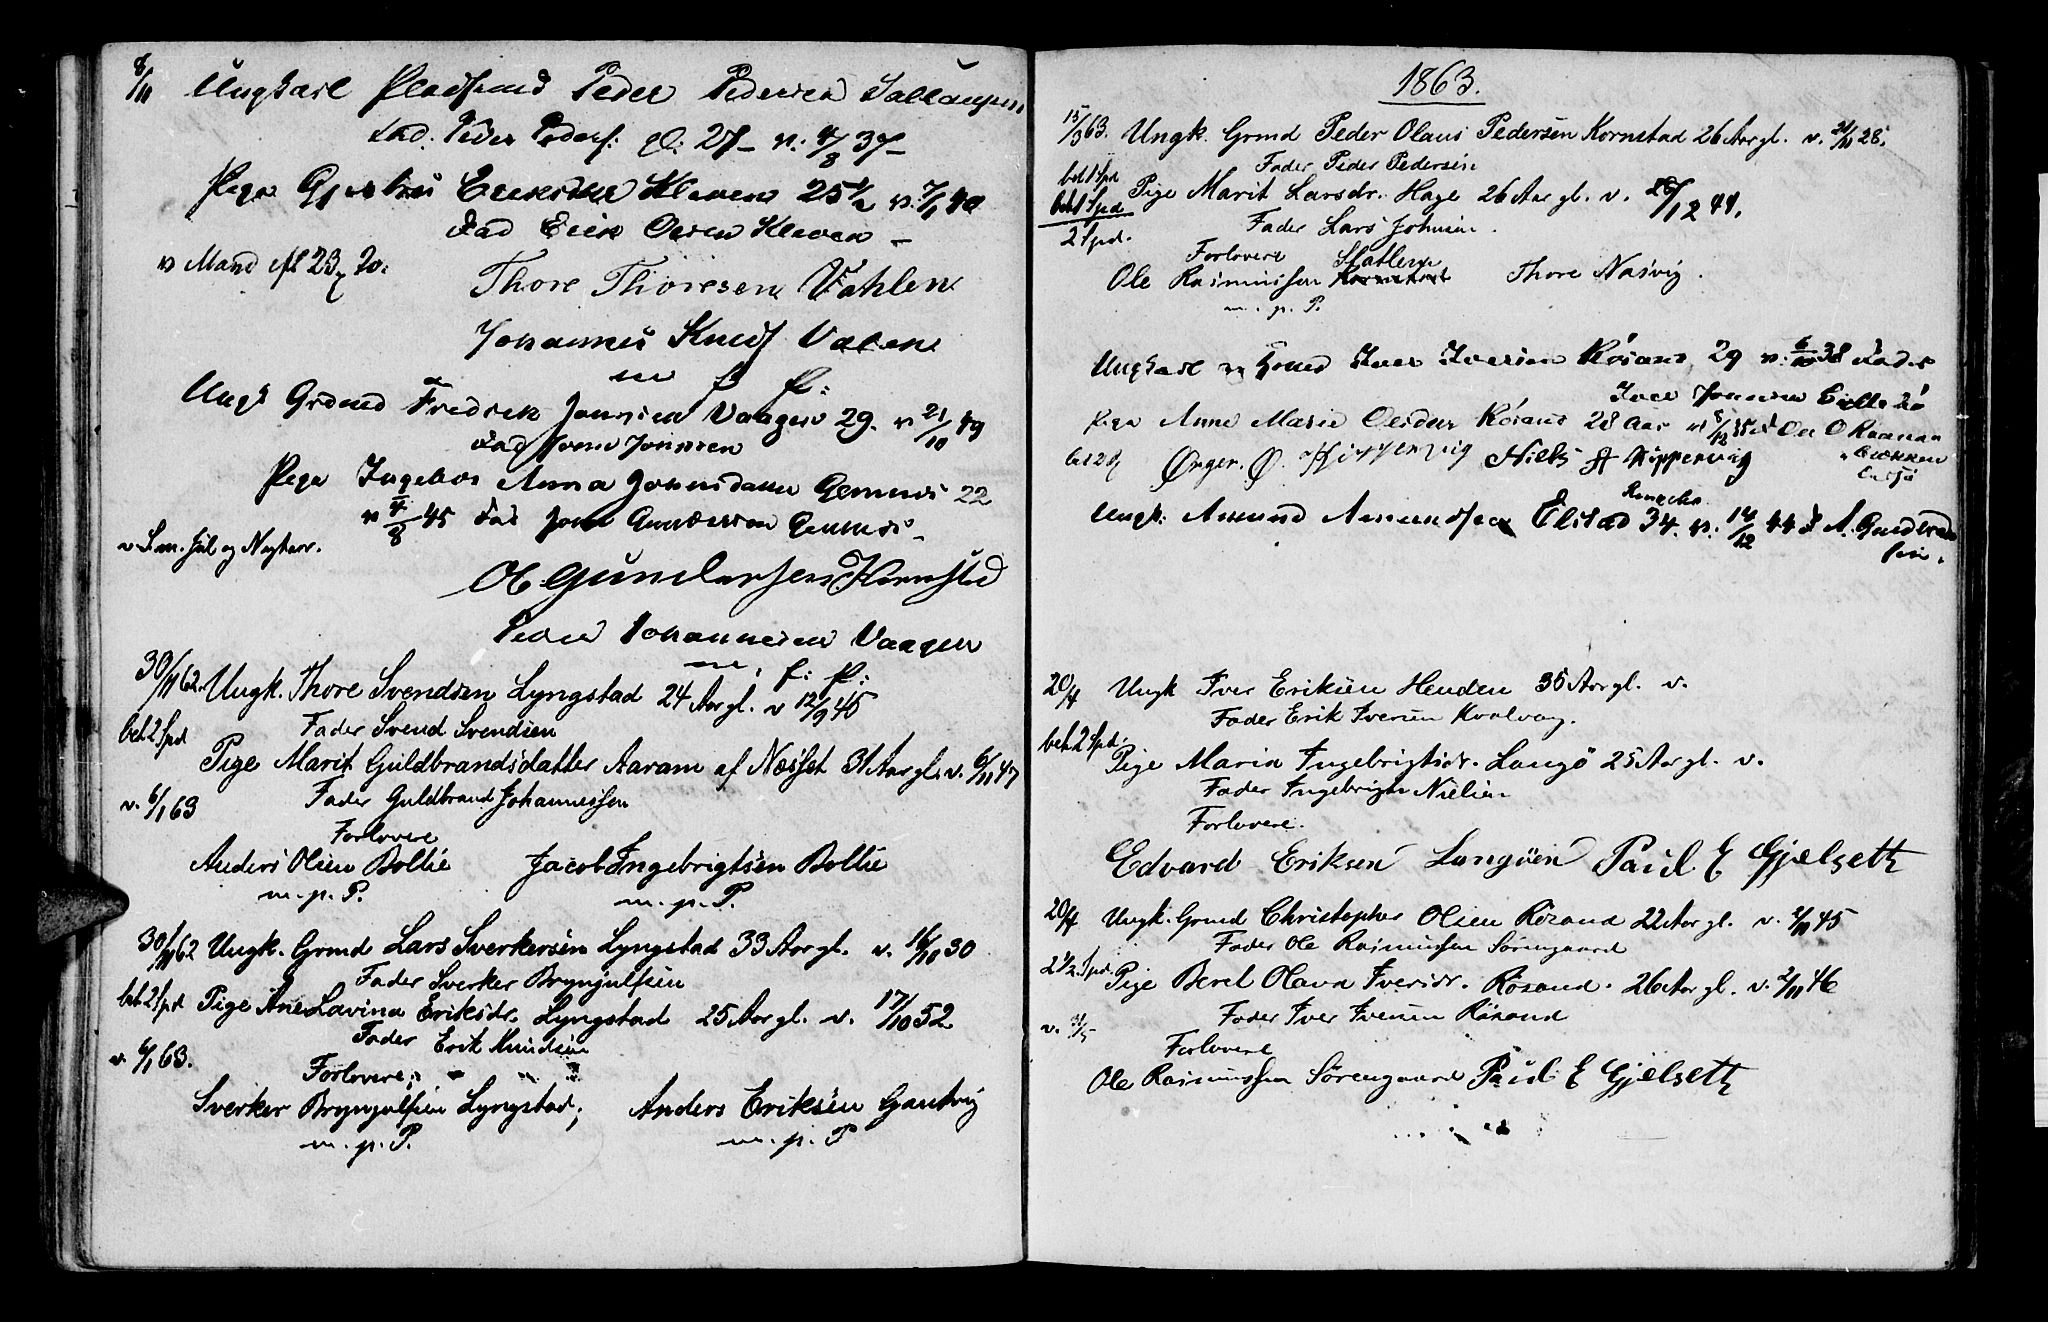 8/11 Ungkarl Pladsmd Peder Pedersen
Fad: Peder Peders: gl: 27 – v. 4/8 37 –
Pige Eriksdtr Kleven 25 1/2 v. 7/1 40
Fad Erik Olsen Kleven –
v Mand eft 23 s. Tr.
Thore Thoresen Vahlen
Johannes Knuds Valen
m f P:
Ungk Grdmd Fredrik Jonssen Vaagen 29. v 21/10 49
Fad Jonssen
Pige Ingebor Anna Johnsdatter Gemnes 22
v 4/8 45 Fad John Gundersen Gemnes –
v S.m. Jul og Nytaar.
Ol Gundersen Kornstad
Peder Johannesen Vaagen
m. f: P:
30/11 62. Ungk. Thore Svendsen Lyngstad 24 Aar gl. v 12/9 45
bet. 2 Spd Fader Svend Svendsen
Pige Marit Guldbrandsdatter Aaram af Næsset 31 Aar gl. v. 6/11 47
v. 6/1 63 Fader Guldbrand Johannessen
Forlovere
Anders Olsen Bollie Jacob Ingebrigtsen Bollie
m. p. P. m. p. P.
30/11 62 Ungk. Grmd Lars Sverkersen Lyngstad 33 Aar gl. v. 16/10 30
Fader Sverker Brynjulfsen
bet. 2 Spd Pige Ane Lavina Eriksdr. Lyngstad 25 Aar gl. v. 17/10 52.
Fader Erik Knudsen
v. 6/1 63. Forlovere;
Sverker Brynjulfsen Lyngstad; Anders Eriksen Gautvig
m. p. P. m. p. P
1863.
15/3 63. Ungk. Grmd Peder Olaus Pedersen Kornstad 26 Aar gl. v. 21/11 28.
Fader Peder Pedersen
bet 1 Spd
Pige Marit Larsdr. Hage 26 Aar gl. v. 28/12 44.
bet 1 Spd
Fader Lars Johnsen.
2 Spd.
Forlovere
Ole Rasmussen Thore Nasvig.
m. p. P.
Ungkarl Grmd Iver Iversen Røsand 29 v. 38 Fader
Iver
Pige Anne Marie Olsdtr Røsand 28 Aar
Niels Kippervig
Ungk. Amund Amundsen 34. v. 14/12 44 F A. Guldbrand
sen.
20/4 Ungk Iver Eriksen Henden 35 Aar gl. v.
Fader Erik Iversen Kvalvaag.
bet. 2 Spd.
Pige Maria Ingebrigtsdr. Langø 25 Aar gl. v.
Fader Ingebrigt Nielsen
Forlovere.
Edvard Eriksen Langöen Paul E Gjelseth
20/4 Ungk. Grmd Christopher Olsen Røsand 22 Aar gl. v. 2/11 45
Fader Ole Rasmussen Sørengaard
2 1/2 Spd. Pige Beret Olava Iversdr. Røsand. 26 Aar gl. v. 2/11 46
Fader Iver Iversen Røsand
v. 31/5
Forlovere
Ole Rasmussen Sørengaard Paul E Gjelseth